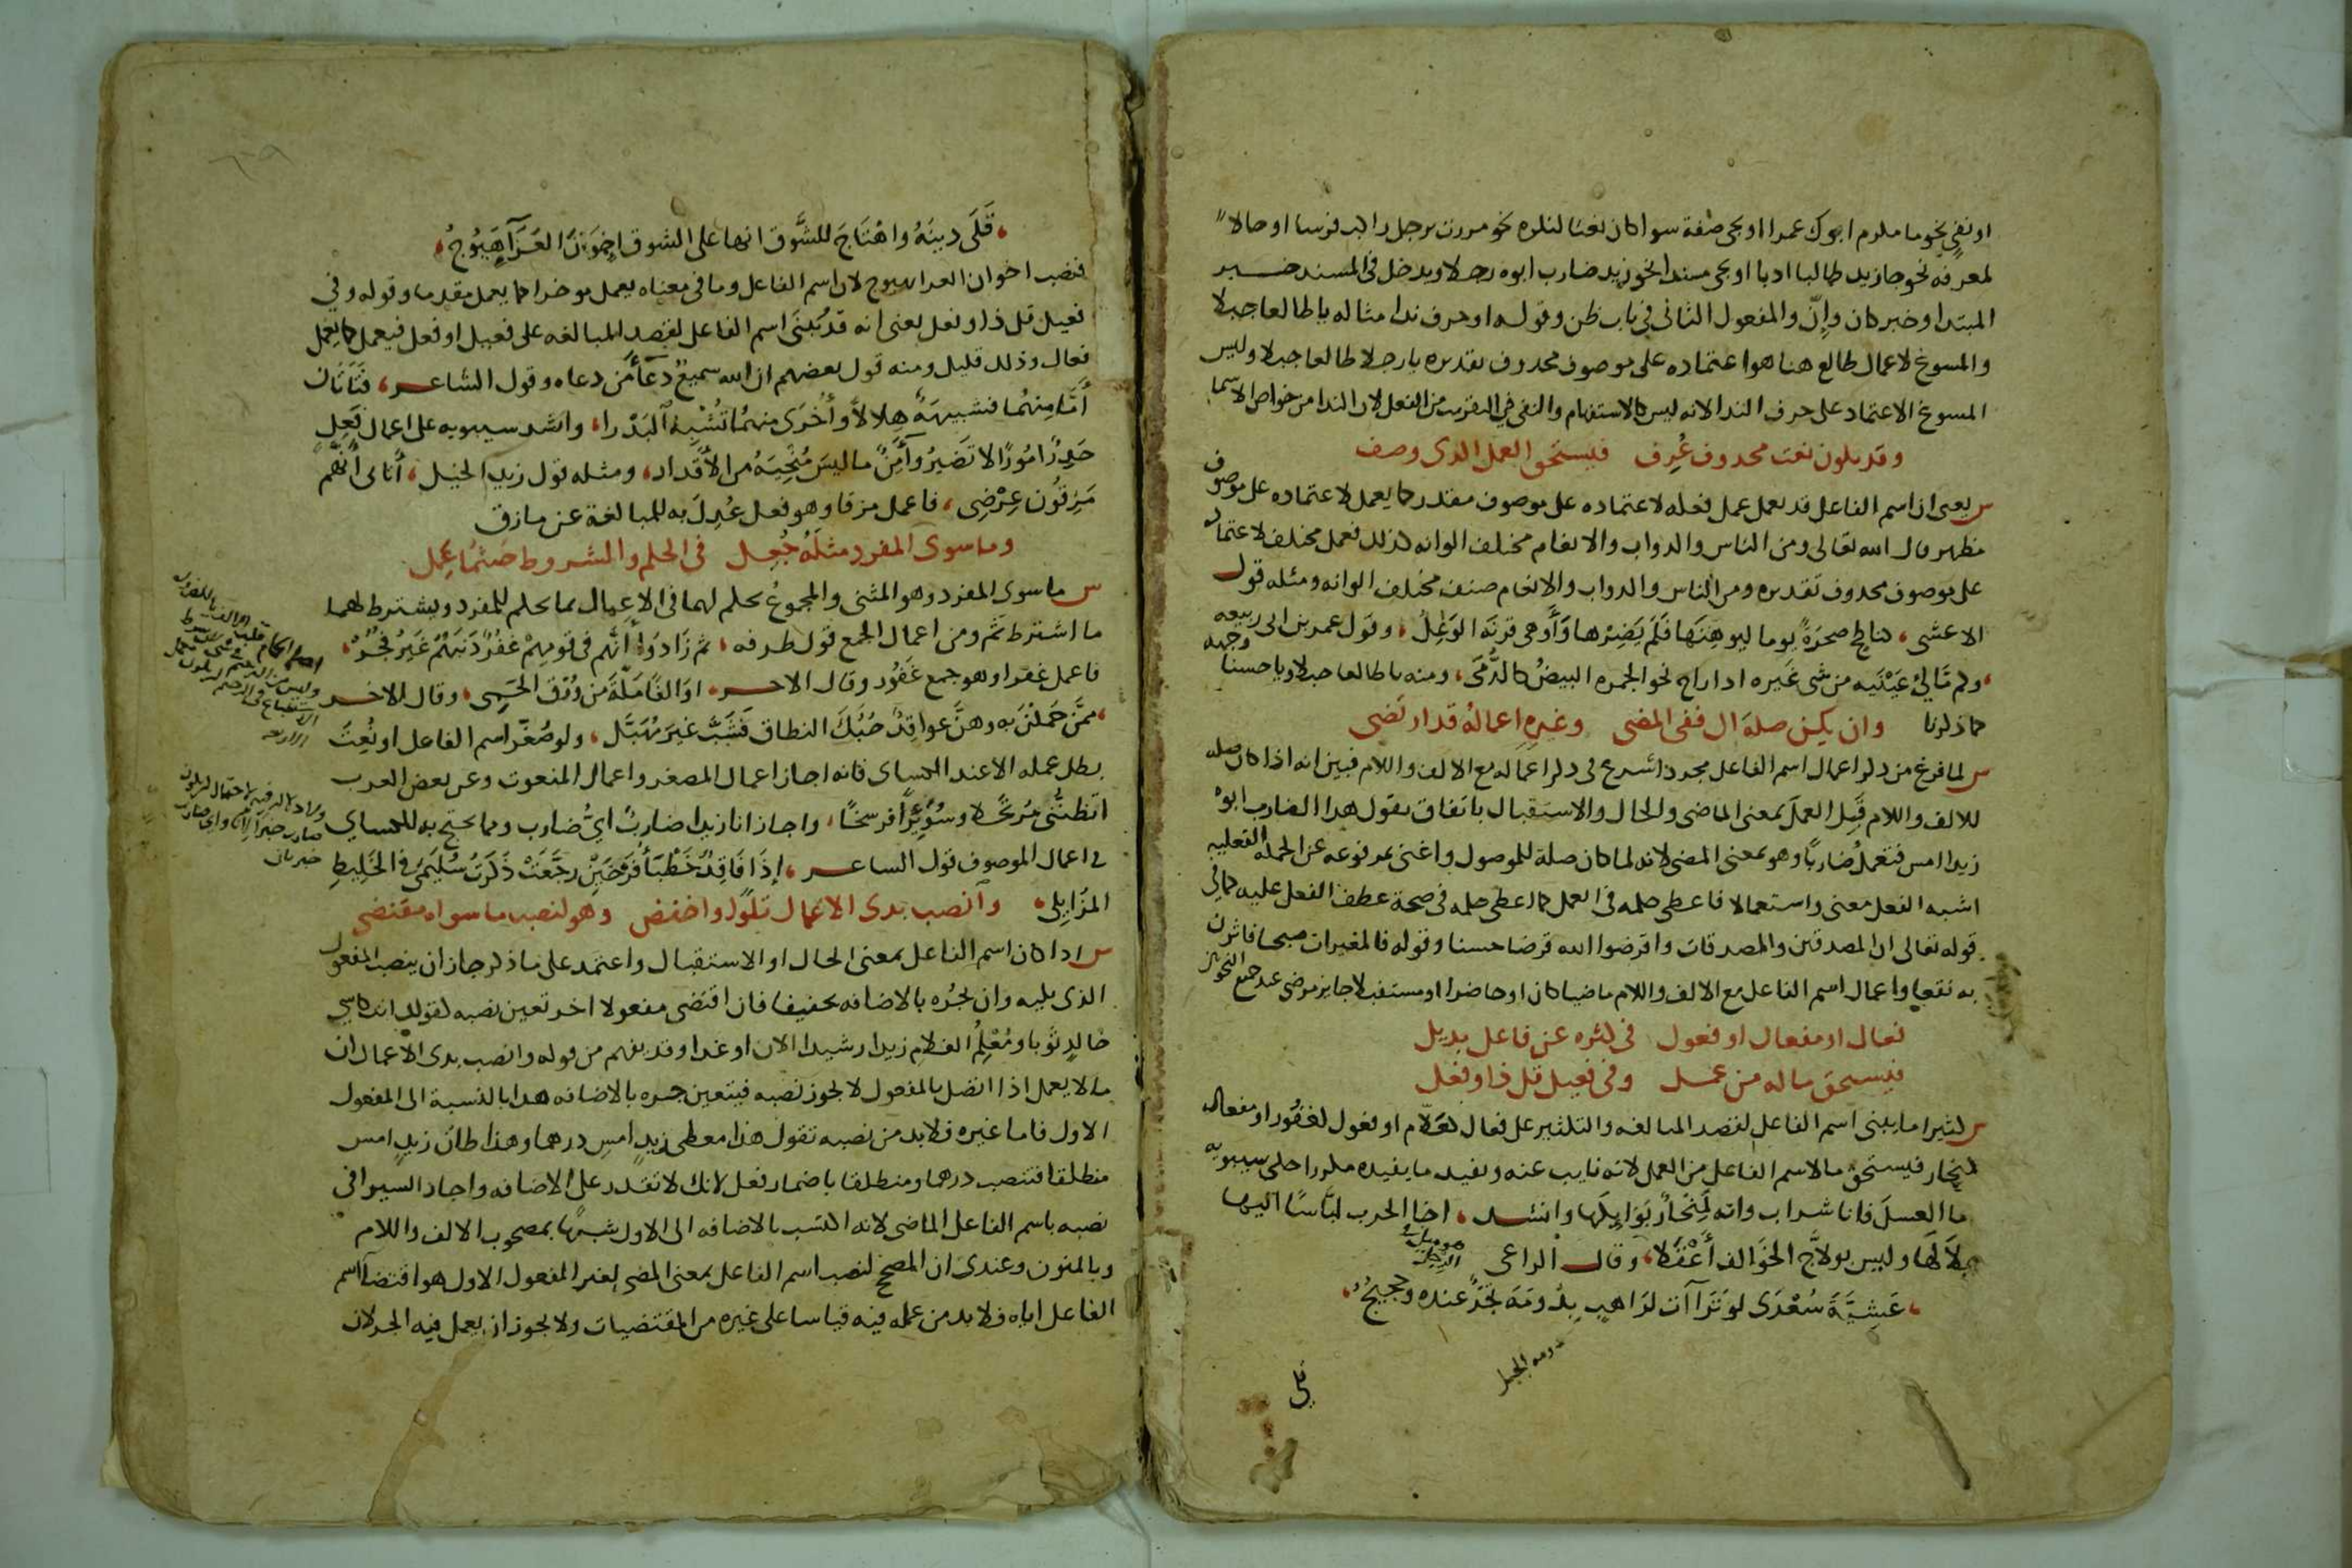 او نفي نحو ما مكرم ابوك عمرا او يجي صفة سوا كان نعتا لنكره نحو مررت برجل راكب فرسا او حالا
لمعرفه نحو جا زيد طالبا ادبا او يجي مسندا نحو زيد ضارب ابوه رجلا ويدخل في المسند خبر
المبتدا وخبر كان وإنّ والمفعول الثاني في باب ظن وقوله او حرف ندا مثاله يا طالعا جبلا
والمسوغ لاعمال طالع هنا هو اعتماده على موصوف محذوف تقديره يا رجلا طالعا جبلا وليس
المسوغ الاعتماد على حرف الندا لانه ليس كالاستفهام والنفي في التقريب من الفعل لان الندا من خواص الاسما
وقد يكون نعت محذوف عُرِف فيستحق العمل الذي وصف
س يعني ان اسم الفاعل قد يعمل عمل فعله لاعتماده على موصوف مقدر كما يعمل لاعتماده على موصوف
مظهر قال الله تعالى ومن الناس والدواب والانعام مختلف الوانه كذلك فعمل مختلف لاعتماده
على موصوف محذوف تقديره ومن الناس والدواب والانعام صنف مختلف الوانه ومثله قول
الاعشى، كناطح صخرةً يوما ليوهنها فلَم يَضِرْها وَأَوهى قرنَه الوَعِلُ، وقول عمر بن ابي ربيعه
، وكم مَالئ عَيْنَيه من شي غَيره اذا راح نحو الجمره البيضُ كالدُّمَى، ومنه يا طالعا جبلا ويا حسنا وجهه
كما ذكرنا وان يكن صلة ال ففي المضي وغيره اعماله قد ارتضي
س لما فرغ من ذكر اعمال اسم الفاعل مجردا شرع في ذكر اعماله مع الالف واللام فبين انه اذا كان صله
للالف واللام قَبِل العمل بمعنى الماضي والحال والاستقبال باتفاق تقول هذا الضارب ابوهُ
زيدا امس فتعمل ضاربًا وهو بمعنى المضي لانه لما كان صلة للموصول واغنى بمرفوعه عن الجملة الفعليه
اشبه الفعل معنى واستعمالا فاعطي حكمه في العمل كما اعطي حكمه في صحة عطف الفعل عليه كما في
قوله تعالى ان المصدقين والمصدقات واقرضوا الله قرضا حسنا وقوله فالمغيرات صبحا فاثرن
به نقعا واعمال اسم الفاعل مع الالف واللام ماضيا كان او حاضرا او مستقبلا جايز مرضي عند جميع النحويين
فعال او مفعال او فعول في كثره عن فاعل بديل
فيستحق ماله من عمل وفي فعيل قل ذا وفعل
س كثيرا ما يبنى اسم الفاعل لقصد المبالغه والتكثير على فعال كعَلّام او فعول كغَفُور او مفعال
كمنحار فيستحق ما لاسم الفاعل من العمل لانه نايب عنه ويفيد ما يفيده مكررا حكى سيبويه
ما العسلَ فانا شراب وانه لَمِنْحَارٌ بَوَايكَها وانشد، اخا الحرب لبّاسًا اليها
جِلالَها وليس بولاّج الخوَالف أَعْقَلا، وقال الراعي
، عَشِيَّةَ سُعْدَى لو تَرَاآت لرَاهِبٍ بِدُومَة تَجْرٌ عنده وحجيجُ،
دومه الجبل
قلى
، قَلَى دينَهُ واهْتَاجَ للشَّوق انها على الشوق إخوَانَ العَزَآ هَيُوجُ،
فنصب اخوان العزا بهيوج لان اسم الفاعل وما في معناه يعمل موخرا كما يعمل مقدما وقوله وفي
فعيل قل ذا وفعل يعني انه قد يُبنَى اسم الفاعل لقصد المبالغه على فعيل او فعل فيعمل كما يعمل
فعال وذلك قليل ومنه قول بعضهم ان الله سميعٌ دعَآءَ من دعاه وقول الشاعر، فَتَاتَان
أمَّا مِنهُما فشبيهةٌ هِلالاً وأُخْرَى منهما تُشْبِه البَدْرا، وانشد سيبويه على اعمال فَعِل
حَذِرٌ امُورًا لا تَضيرُ وآمِنٌ ما ليسَ مُنْجِيَهُ من الأقدار، ومثله قول زيد الخيل، أتاني أنّهُم
مَزِقُون عِرْضِي، فاعمل مزقا وهو فعل عُدِلَ به للمبالغة عن مازق
وما سوى المفرد مثلَهُ جُعِل في الحكم والشروط حيثما عَمِل
س ما سوى المفرد وهو المثنى والمجموعُ يحكم لهما في الاعمال بما يحكم للمفرد ويشترط لهما
ما اشترط ثَمّ ومن اعمال الجمع قول طرفه، ثم زَادوَا أنَّهم في قومِهِمْ غفُرٌ ذنبَهُمُ غَيرُ فُخُرْ،
فاعمل غفرا وهو جمع غَفُور وقال الاخر، اوَالفًا مَكّةَ من وُرْقِ الحَمِي، وقال الاخر
، ممَّن حَمَلْنَ به وهنَّ عواقِدٌ حُبُكَ النطاق فَشَبَّ غيرَ مُهَبَّل، ولو صُغّر اسم الفاعل او نُعِتَ
بطل عمله الا عند الكساى فانه اجاز اعمال المصغر واعمال المنعوت وعن بعض العرب
اتظنُّني مُرتحلا وسُوَيِّرًا فرسخًا، واجاز انا زيدا ضاربٌ ايُّ ضارب ومما يحتج به للكساي
في اعمال الموصوف قول الشاعر، إذَا فَاقِدٌ خَطْبَأُ فَرْخَيْن رجَّعَتْ ذَكَرتُ سُلَيمَى في الخَلِيطِ
المزَايِلِ، وانصب بذي الاعمال تلوًا واخفض وهو لنصب ما سواه مقتضي
س اذا كان اسم الفاعل بمعنى الحال او الاستقبال واعتمد على ما ذكر جاز ان ينصب المفعول
الذي يليه وان يجُره بالاضافه تخفيفا فان اقتضى مفعولا اخر تعين نصبه كقولك انت كاسي
خالدٍ ثوبا ومُعْلِمُ الغلام زيدا رشيدا الان او غدا وقد يفهم من قوله وانصب بذي الاعمال ان
ما لا يعمل اذا اتصل بالمفعول لا يجوز نصبه فيتعين جره بالاضافه هذا بالنسبة الى المفعول
الاول فاما غيره فلابد من نصبه تقول هذا معطي زيدٍ امسِ درهما وهذا ظانُّ زيدٍ امس
منطلقا فتنصب درهما ومنطلقا باضمار فعل لانك لا تقدر على الاضافه واجاز السيرافي
نصبه باسم الفاعل الماضي لانه اكتسب بالاضافه الى الاول شبهًا بمصحوب الالف واللام
وبالمنون وعندي ان المصحح لنصب اسم الفاعل بمعنى المضي لغير المفعول الاول هو اقتضآ اسم
الفاعل اياه فلابد من عمله فيه قياسا على غيره من المقتضيات ولا يجوز ان يعمل فيه الجر لان